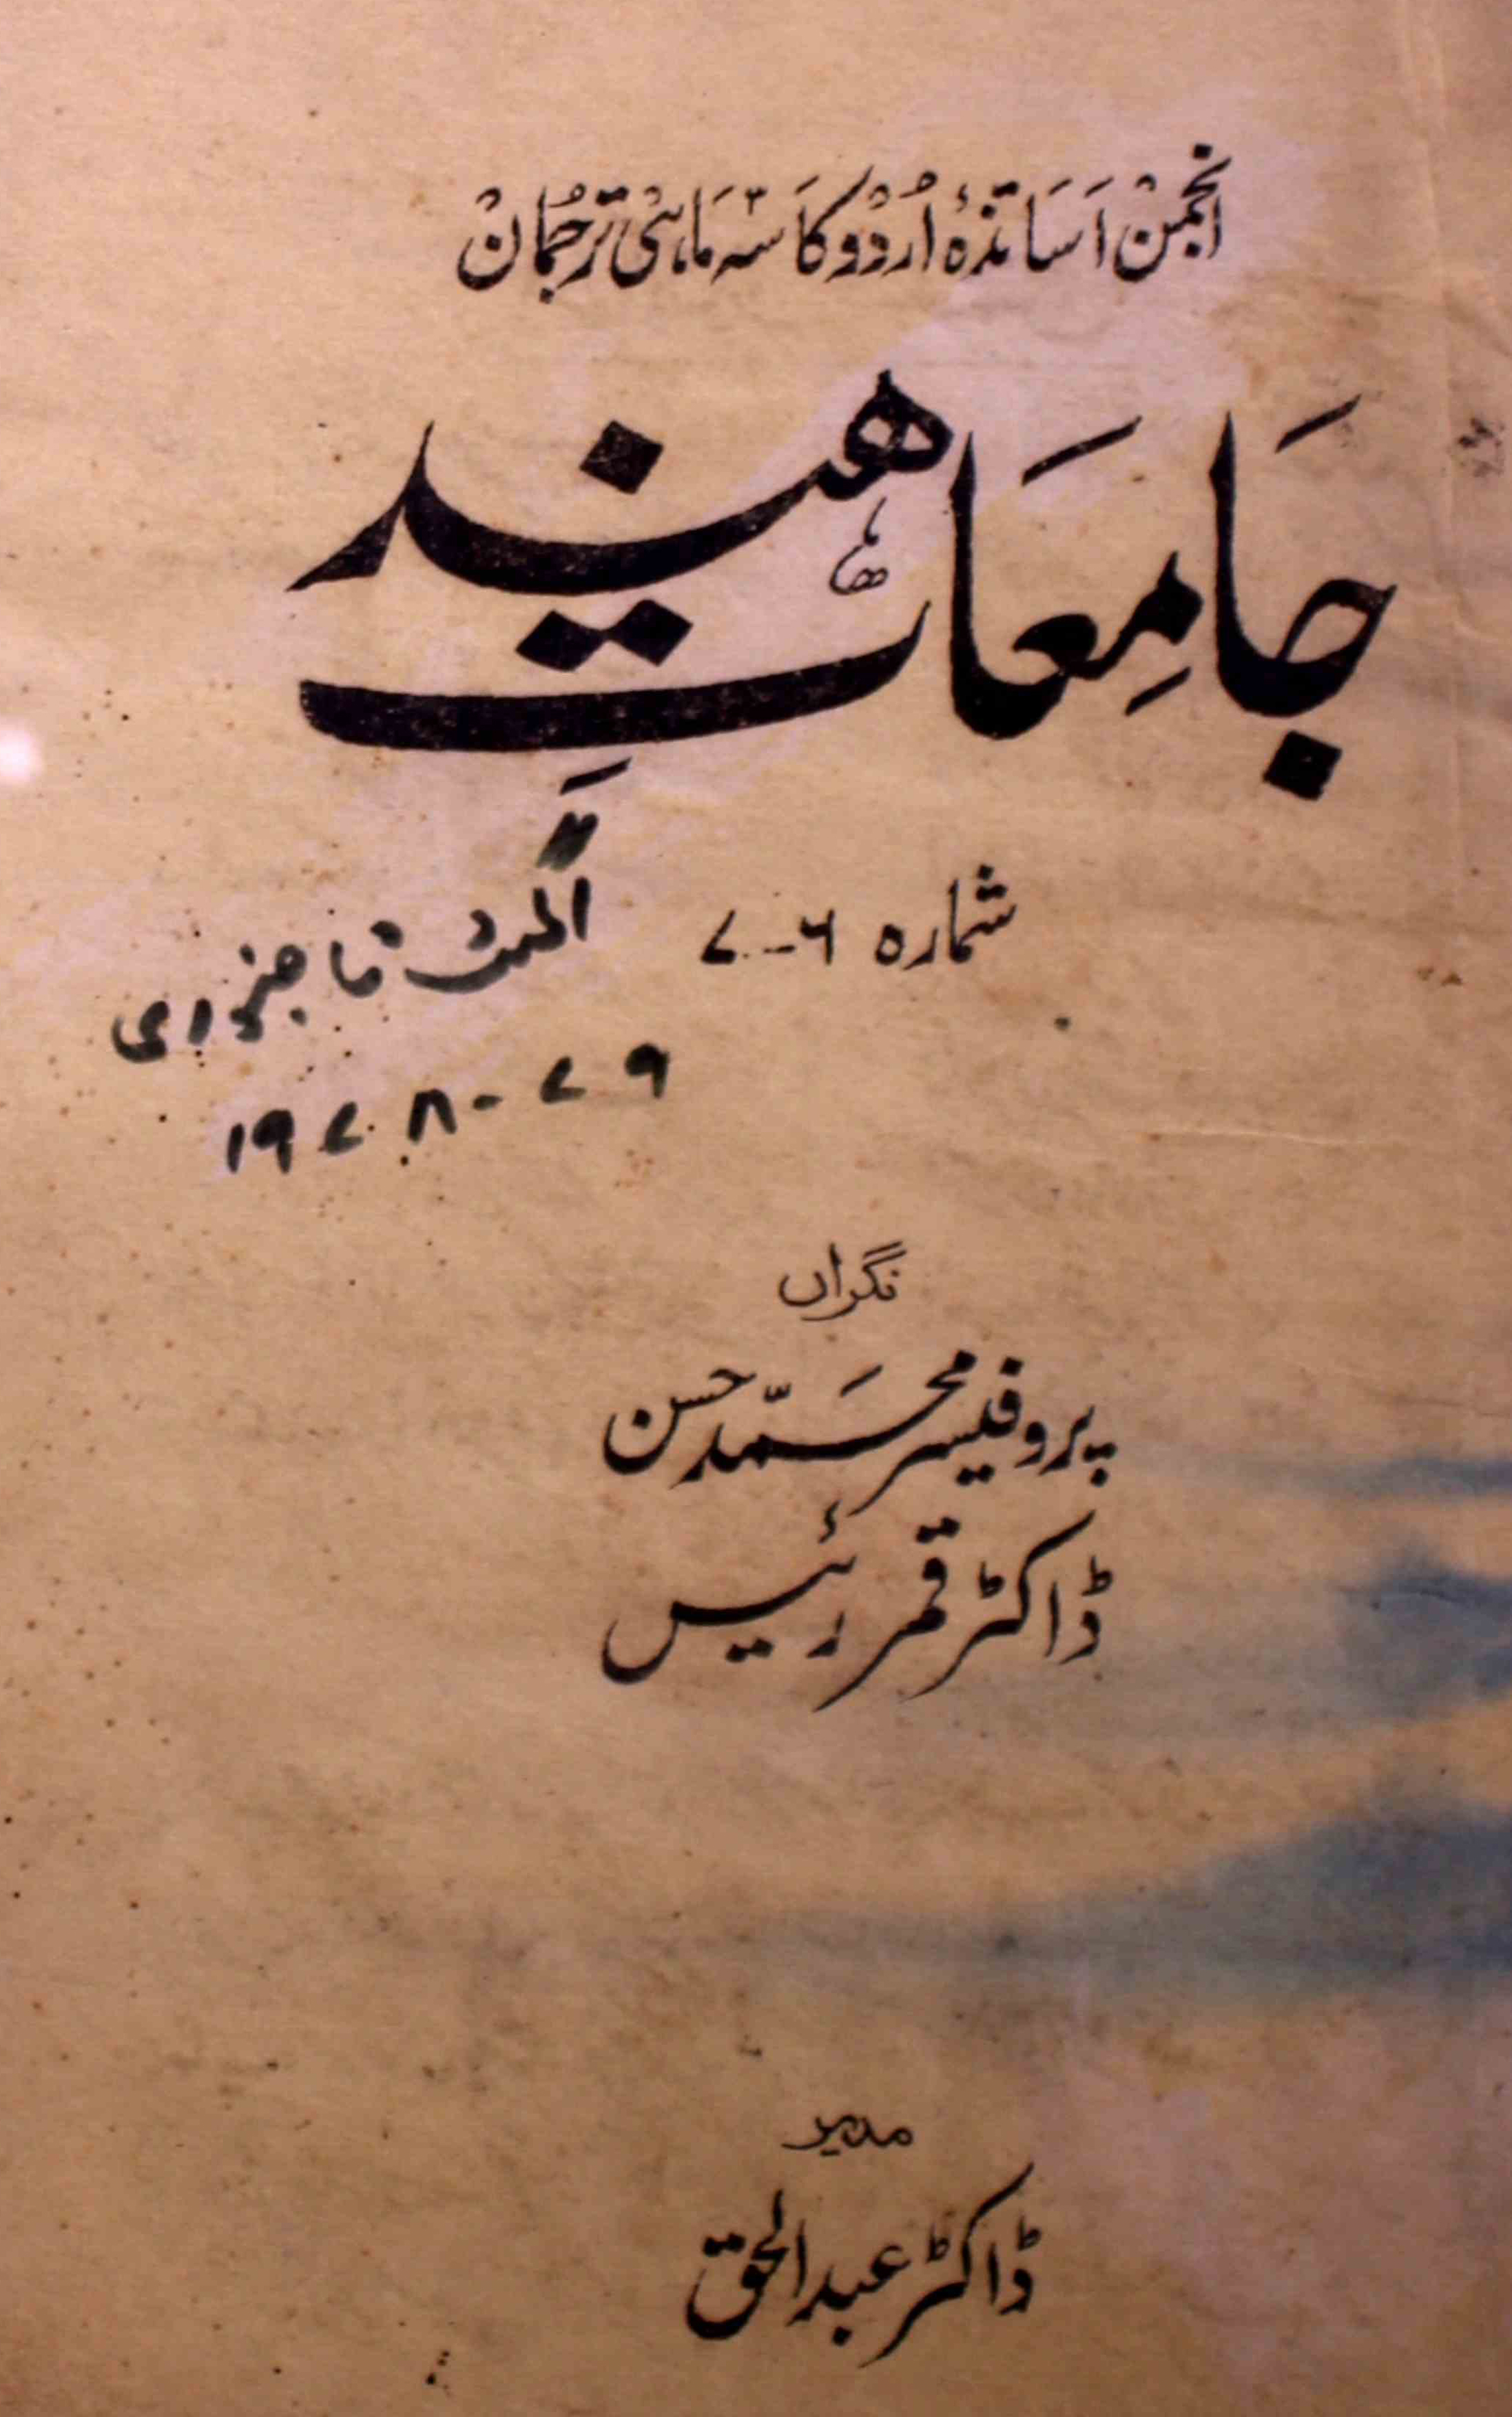 انجمن اساتذۂ اردو کا سہ ماہی ترجمان
جامعاتِ ہند
شمارہ ۶-۷
اگست تا جنوری
۱۹۷۸-۷۹
نگراں
پروفیسر محمّد حسن
ڈاکٹر قمر رئیس
مدیر
ڈاکٹر عبدالحق